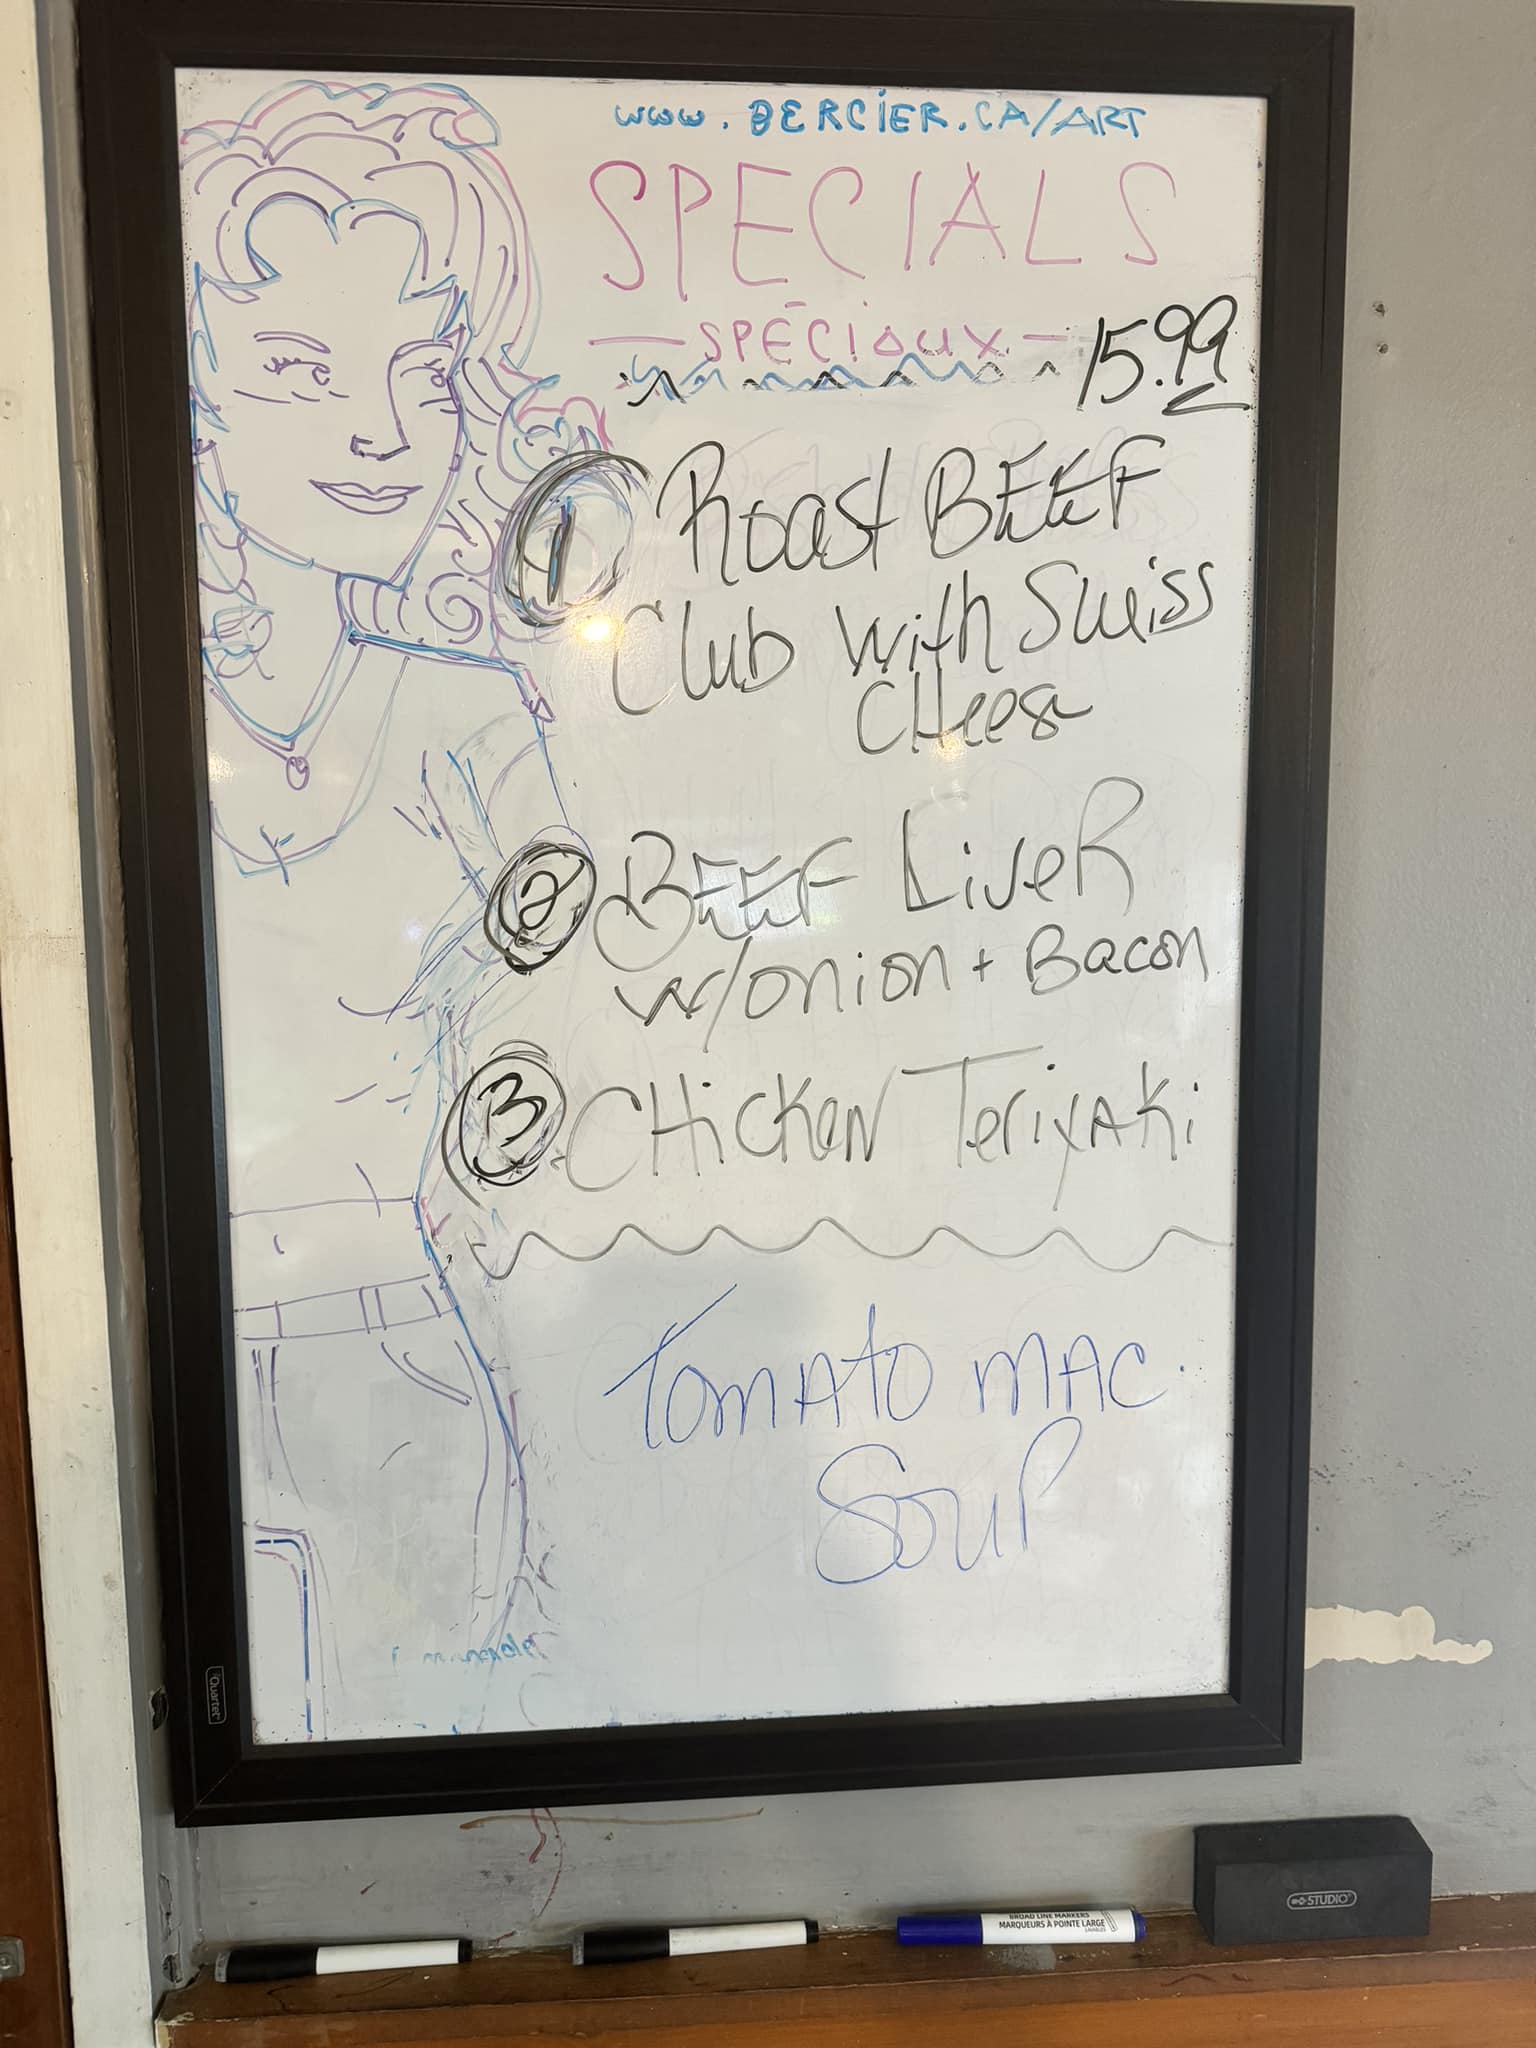 www.BERCIER.CA/ART
SPECIALS
- SPÉCIAUX -
15.99
1 Roast BEEF
Club with Swiss
CHeese
2 BEEF LiveR
w/onion + Bacon
3 CHicKen TeriyAKi
TomATo MAC.
Soup
Quartet
STUDIO
BROAD LINE MARKERS
MARQUEURS À POINTE LARGE